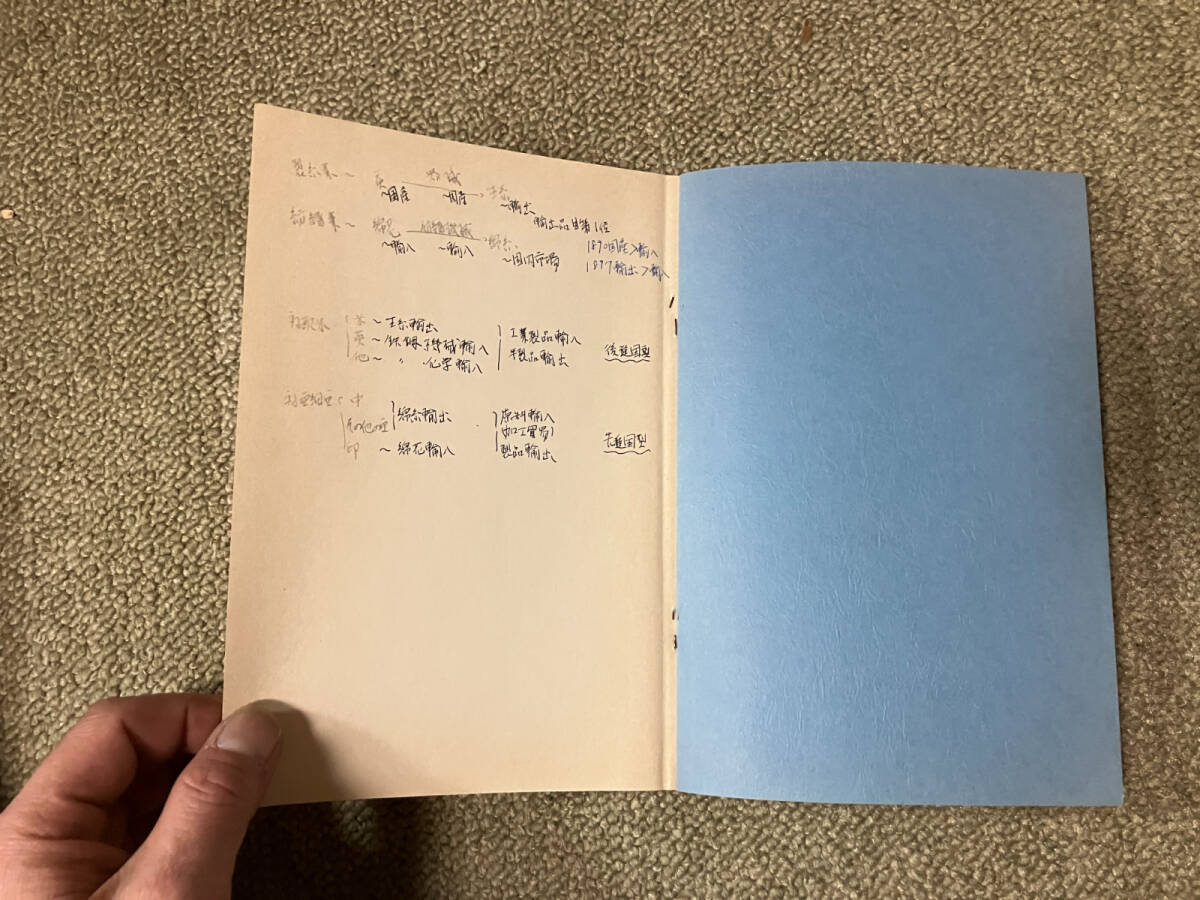 製糸業〜 器械 → 生糸
〜国産 〜国産 〜輸出
輸出品 1位
紡績業〜 綿花 紡績機械 → 綿糸
〜輸入 〜輸入 〜国内市場
1890国産>輸入
1897輸出>輸入
対欧米 米〜生糸輸出
英〜鉄 機械輸入
他〜 〃 化学輸入
工業製品輸入
半製品輸出
後進国型
対亜細亜 中
その他亜 綿糸輸出
印 〜綿花輸入
原料輸入
加工貿易
製品輸出
先進国型